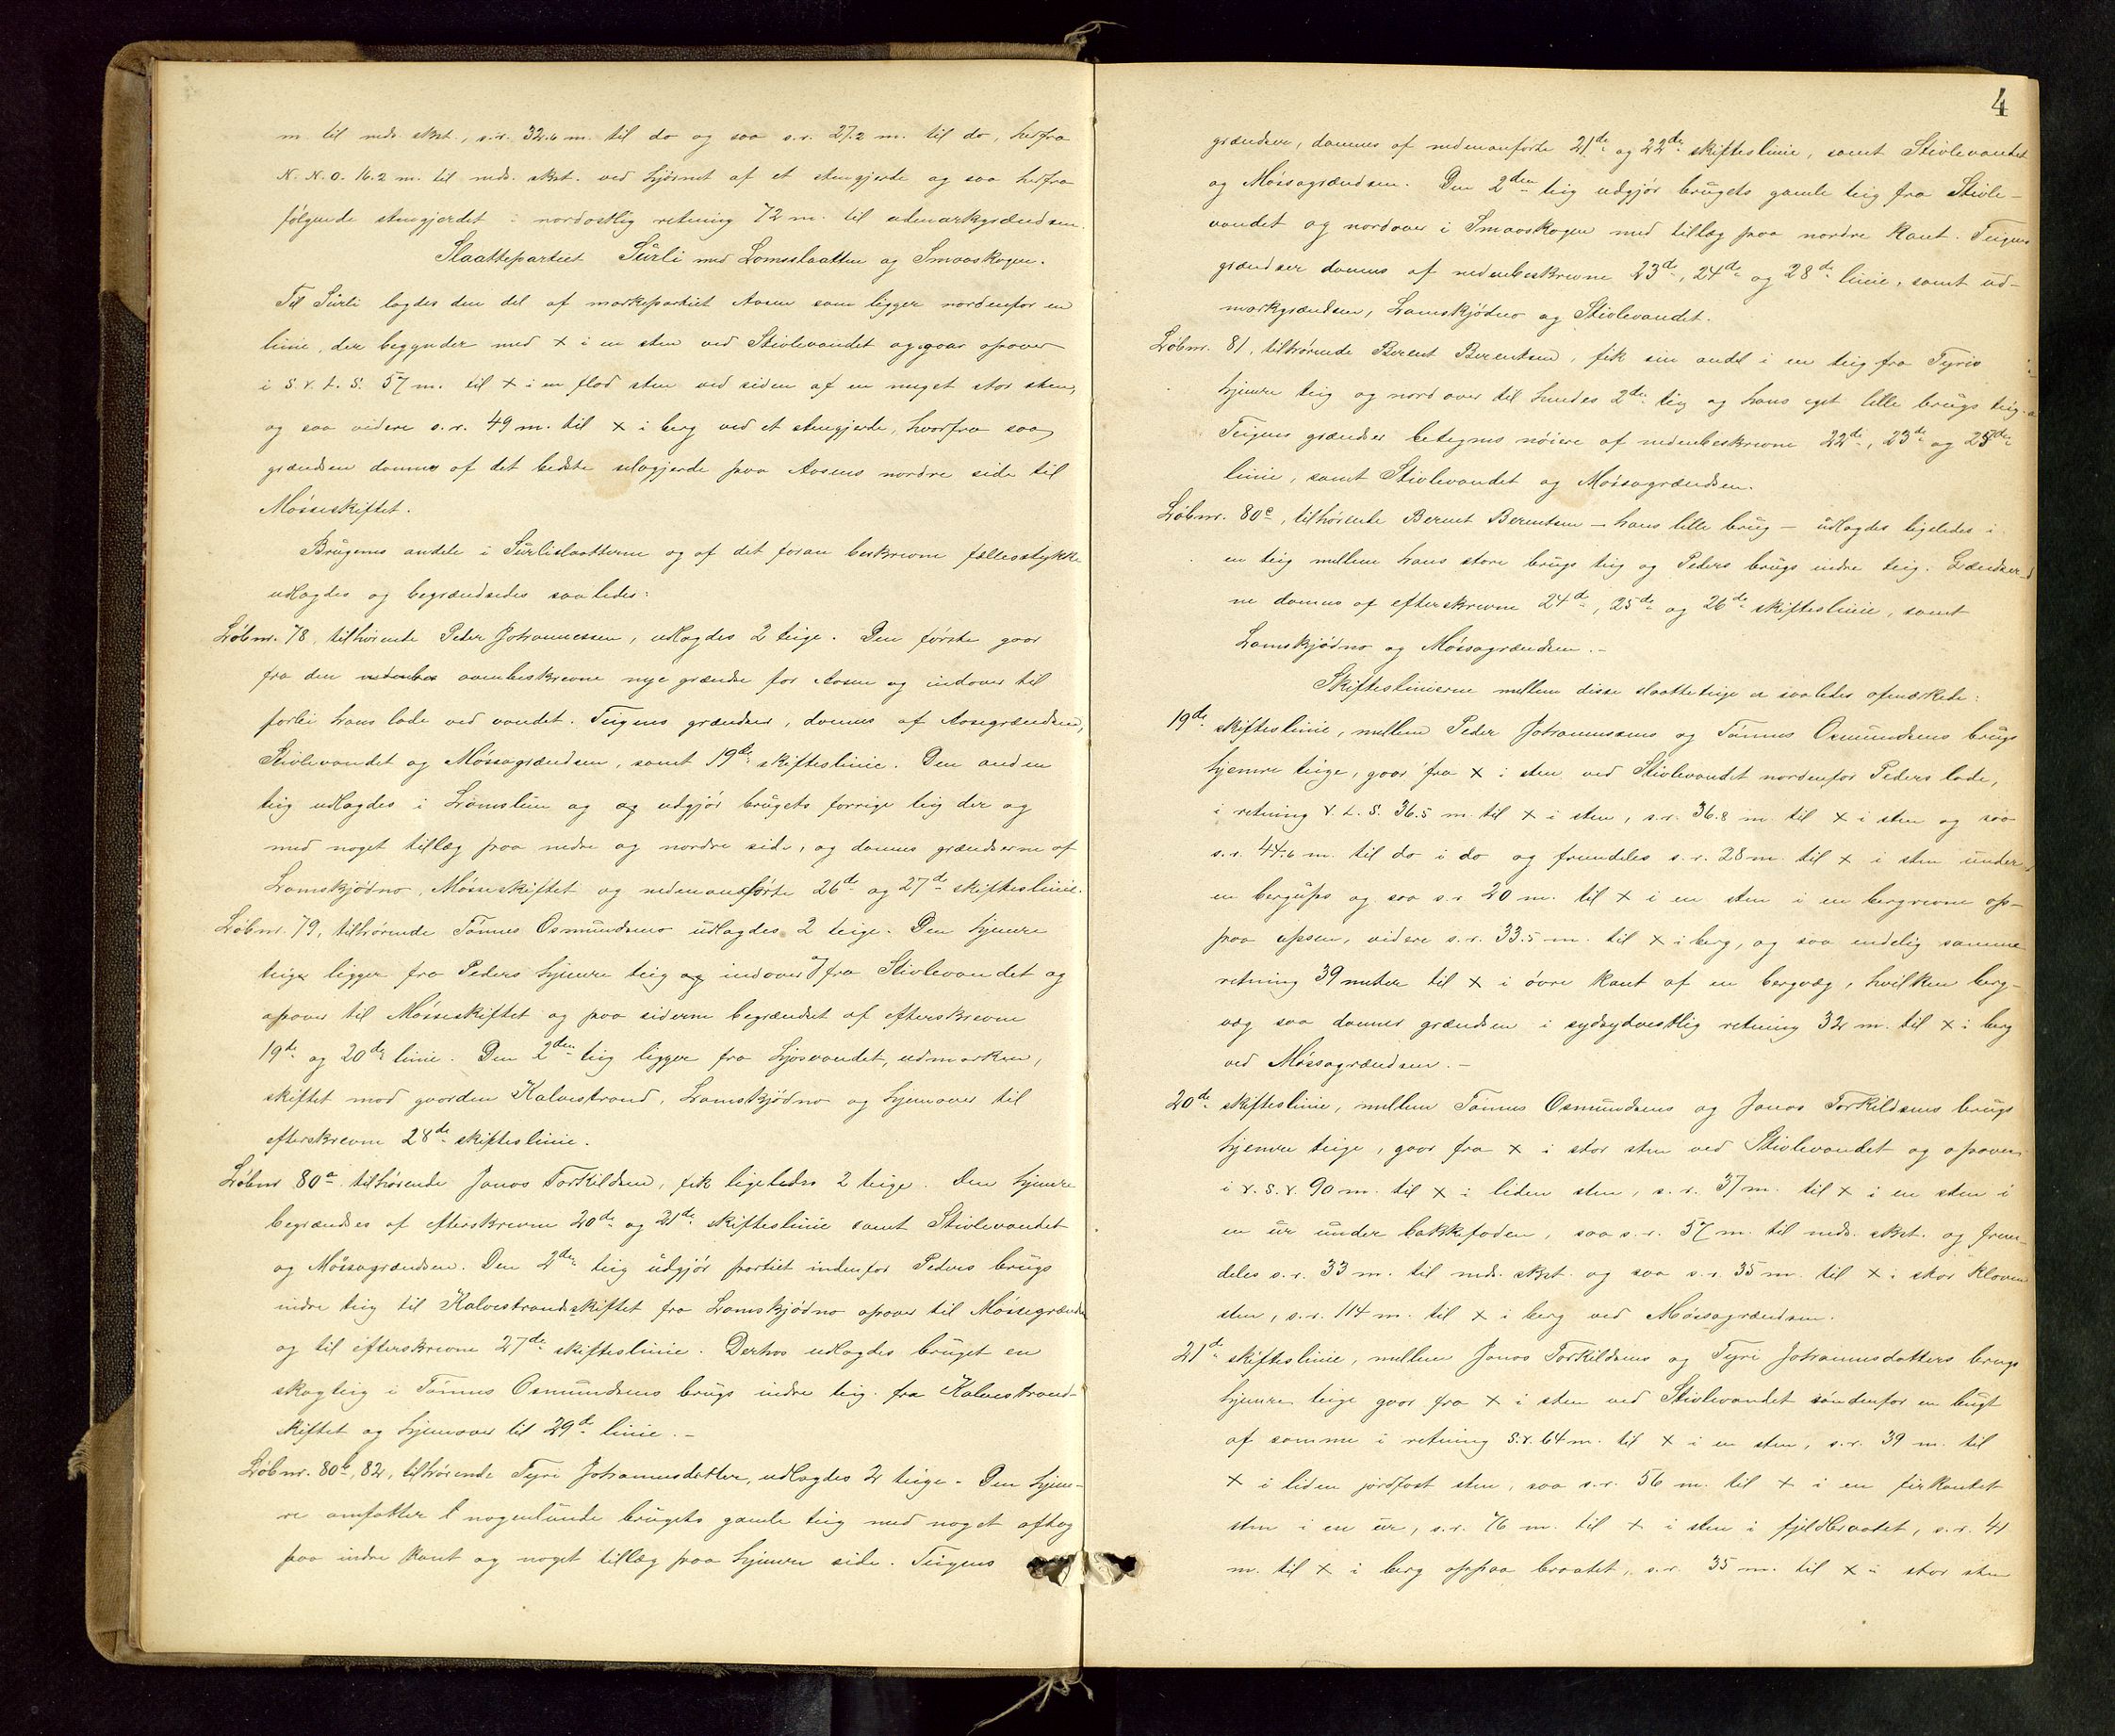 m. til neds. skst., s.r. 32.6 m. til do og saa s.r. 27.2 m. til do, herfra
N.N.O. 16.2 m. til neds. skst. ved hjörnet af et stengjerde og saa herfra
fölgende stengjerdet i nordostlig retning 72 m. til udmarksgrændsen.
Slaattepartiet Surli med Lomsslaatten og Smaaskogen.
Til Surli lagdes den del af markepartiet Aasen som ligger nordenfor en
linie, der begynder med × i en sten ved Stivlevandet og gaar opover
i S.V.t.S. 57 m. til × i en flad sten ved siden af en meget stor sten,
og saa videre s.r. 49 m. til × i berg ved et stengjerde, hvorfra saa
grændsen dannes af det bedste ulagjerde paa Aasens nordre side til
Mösseskiftet.
Brugenes andele i Surlislaatterne og af det foran beskrevne fællesstykke
udlagdes og begrændsedes saaledes:
Löbnr. 78, tilhörende Peder Johannessen, udlagdes 2 teige. Den förste gaar
fra den ovenbeskrevne nye grændse for Aasen og indover til
forbi hans lade ved vandet. Teigens grændser, dannes af Aasegrændsen,
Stivlevandet og Mössagrændsen, samt 19de skifteslinie. Den anden
teig udlagdes i Lomslien og og udgjör brugets forrige teig der og
med noget tillæg paa nedre og nordre side, og dannes grændserne af
Lomskjödno, Mösseskiftet og nedenanförte 26de og 27de skifteslinie.
Löbnr. 79, tilhörende Tönnes Osmundsens udlagdes 2 teige. Den hjemre
teig ligger fra Peders hjemre teig og indover fra Stivlevandet og
opover til Mösseskiftet og paa siderne begrændset af efterskrevne
19de og 20de linie. Den 2den teig ligger fra Ljosvandet, udmarken,
skiftet mod gaarden Kalvestrand, Lomskjödno og hjemover til
efterskrevne 28de skifteslinie.
Löbnr 80a tilhörende Jonas Torkildsen, fik ligeledes 2 teige. Den hjemre
begrændses af efterskrevne 20de og 21de skifteslinie samt Stivlevandet
og Mössagrændsen. Den 2den teig udgjör partiet indenfor Peders brugs
indre teig til Kalvestrandskiftet fra Lomskjödno opover til Mössegrændsen
og til efterskrevne 27de skifteslinie. Derhos udlagdes bruget en
skogteig i Tönnes Osmundsens brugs indre teig fra Kalvestrand-
skiftet og hjemover til 29de linie. –
Löbnr. 80b, 82, tilhörende Tyri Johannesdatter, udlagdes 2 teige. Den hjem-
re omfatter nogenlunde brugets gamle teig med noget aftag
paa indre kant og noget tillæg paa hjemre side. Teigens
4
grændser, dannes af nedenanförte 21de og 22de skifteslinie, samt Stivlevandet
og Mössagrændsen. Den 2den teig udgjör brugets gamle teig fra Stivle-
vandet og nordover i Smaaskogen med tillæg paa nordre kant. Teigens
grændser dannes af nedenbeskrevne 23de, 24de og 28de linie, samt ud-
markgrændsen, Lomskjödno og Stivlevandet.
Löbnr. 81, tilhörende Berent Berentsen, fik sin andel i en teig fra Tyris
hjemre teig og nordover til hendes 2den teig og hans eget lille brugs teig.
Teigens grændser betegnes nöiere af nedenbeskrevne 22de, 23de og 25de
linie, samt Stivlevandet og Mössagrændsen.
Löbnr. 80c, tilhörende Berent Berentsen – hans lille brug – udlagdes ligeledes i
en teig mellem hans store brugs teig og Peders brugs indre teig. Grændser-
ne dannes af efterskrevne 24de, 25de og 26de skifteslinie, samt
Lomskjödno og Mössagrændsen. –
Skifteslinierne mellem disse slaatteteige er saaledes afmærkede:
19de skifteslinie, mellem Peder Johannessens og Tönnes Osmundsens brugs
hjemre teige, gaar fra × i sten ved Stivlevandet nordenfor Peders lade,
i retning V.t.S. 36.5 m. til × i sten, s.r. 36.8 m. til × i sten og saa
s.r. 44.6 m. til do i do og fremdeles s.r. 28 m. til × i sten under
en bergups og saa s.r. 20 m. til × i en sten i en bergrevne op-
paa upsen, videre s.r. 33.5 m. til × i berg, og saa endelig samme
retning 39 meter til × i övre kant af en bergvæg, hvilken berg-
væg saa danner grændsen i sydsydvestlig retning 32 m. til × i berg
ved Mössagrændsen. –
20de skifteslinie, mellem Tönnes Osmundsens og Jonas Torkildsens brugs
hjemre teige, gaar fra × i stor sten ved Stivlevandet og opover
i V.S.V. 90 m. til × i liden sten, s.r. 37 m. til × i en sten i
en ur under bakkefoden, saa s.r. 57 m. til neds. skst. og frem-
deles s.r. 33 m. til neds. skst. og saa s.r. 35 m. til × i stor kloven
sten, s.r. 114 m. til × i berg ved Mössagrændsen.
21de skifteslinie, mellem Jonas Torkildsens og Tyri Johannesdatters brugs
hjemre teige gaar fra × i sten ved Stivlevandet söndenfor en bugt
af samme i retning S.V. 64 m. til × i en sten, s.r. 39 m. til
× i liden jordfast sten, saa s.r. 56 m. til × i en firkantet
sten i en ur, s.r. 76 m. til × i sten i fjeldbraatet, s.r. 41
m. til × i berg oppaa braatet, s.r. 35 m. til × i stor sten